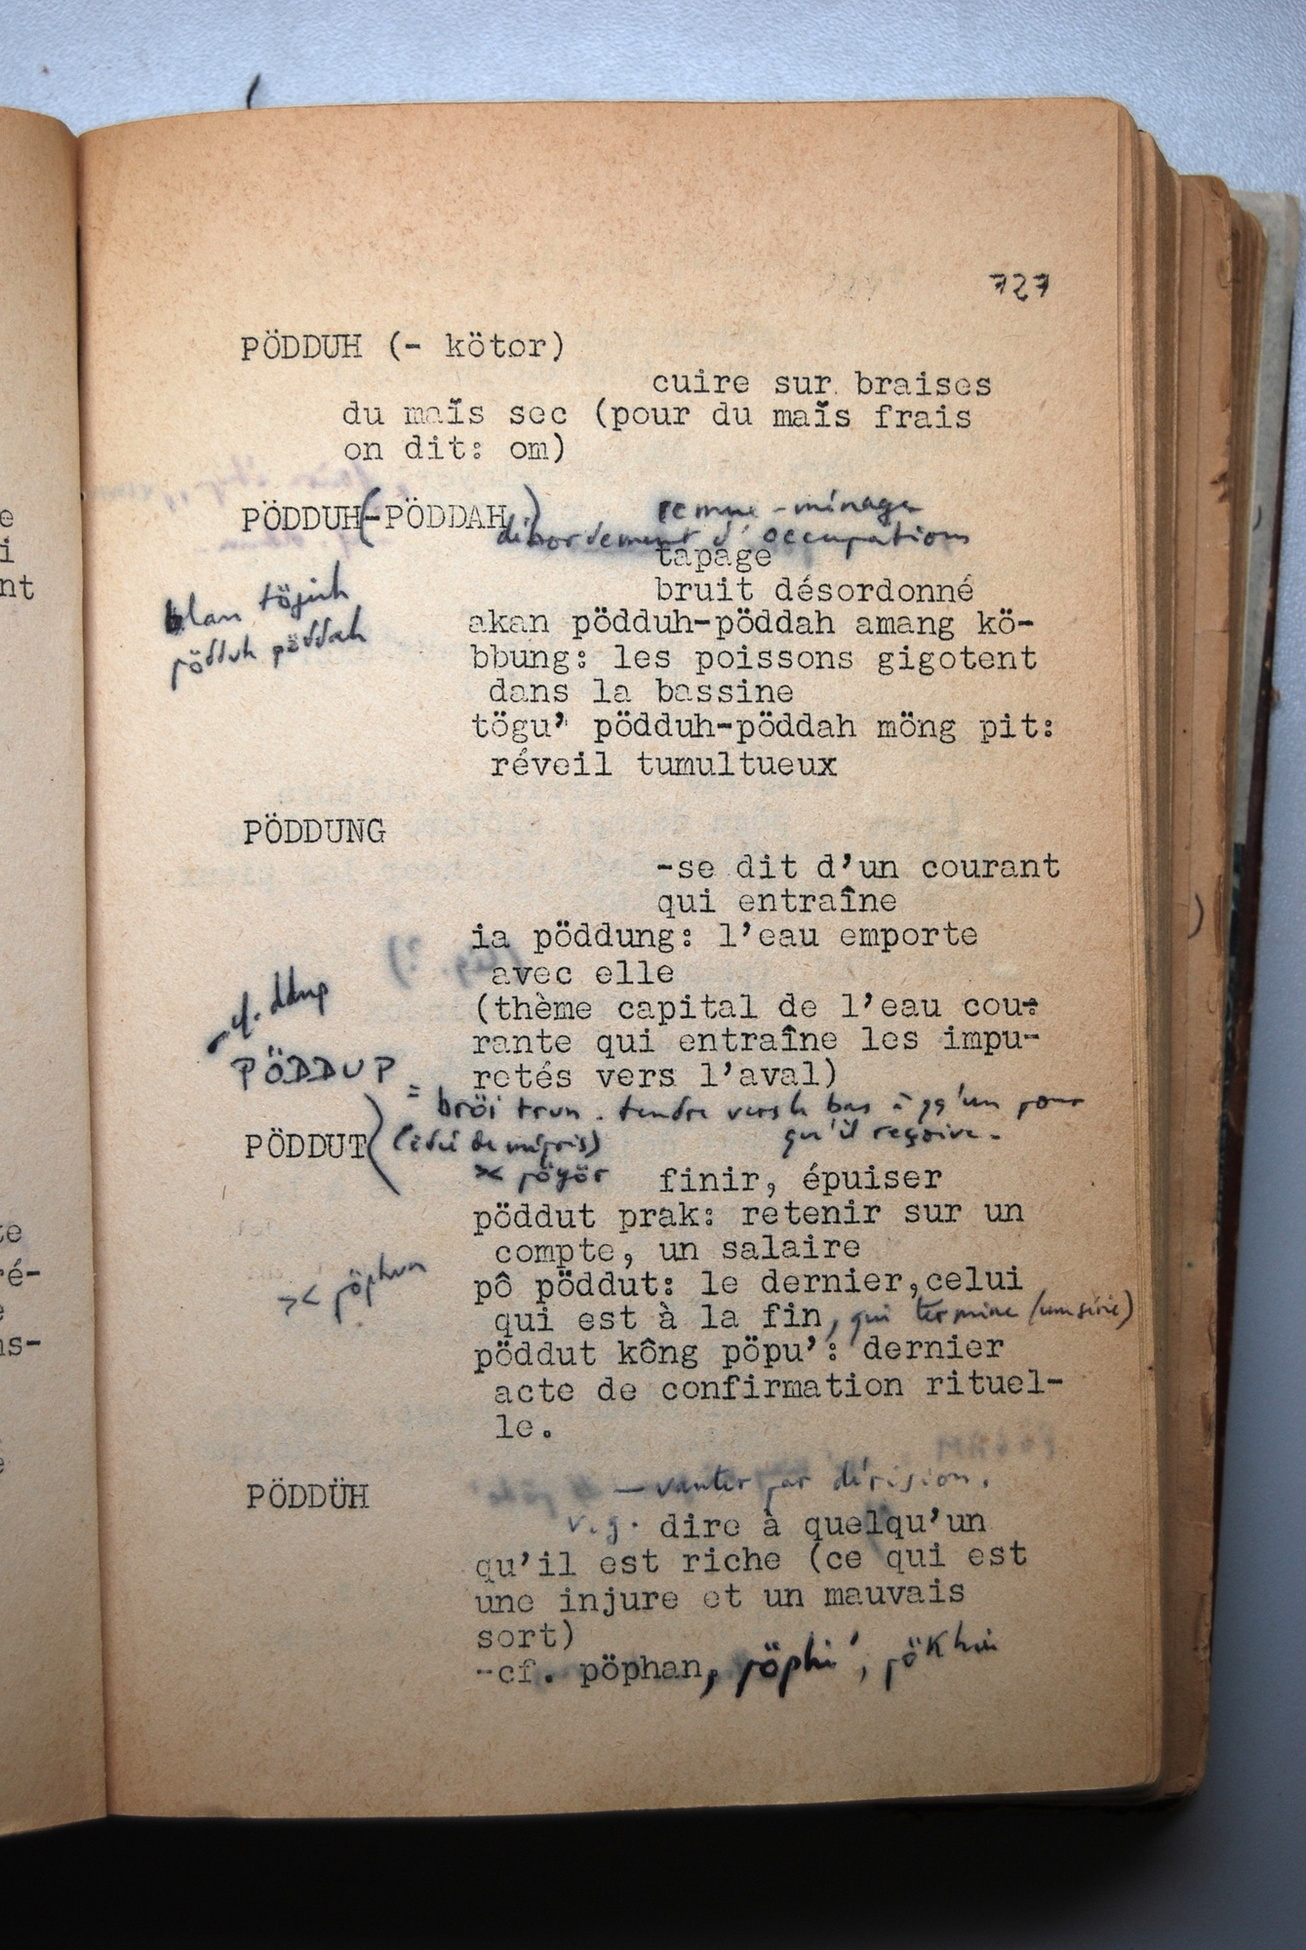 727
PÖDDUH (- kötor)
cuire sur braises
du maïs sec (pour du maïs frais
on dit: om)
PÖDDUH(-PÖDDAH)
remue-ménage
débordement d'occupations
tapage
bruit désordonné
blan
pödduh pöddah
akan pödduh-pöddah amang kö-
bbung: les poissons gigotent
dans la bassine
tögu' pödduh-pöddah möng pit:
réveil tumultueux
PÖDDUNG
-se dit d'un courant
qui entraîne
ia pöddung: l'eau emporte
avec elle
(thème capital de l'eau cou-
rante qui entraîne les impu-
retés vers l'aval)
- cf. ddup
PÖDDUP
= bröi trun. tendre vers le bas à qq'un pour
qu'il reçoive.
(idée de mépris)
>< pöyör
PÖDDUT
finir, épuiser
pöddut prak: retenir sur un
compte, un salaire
>< pöphun
pô pöddut: le dernier, celui
qui est à la fin, qui termine (une série)
pöddut kông pöpu': dernier
acte de confirmation rituel-
le.
PÖDDÜH
— vanter par dérision.
v.g. dire à quelqu'un
qu'il est riche (ce qui est
une injure et un mauvais
sort)
-cf. pöphan,
e
i
nt
te
ré-
e
ns-
e